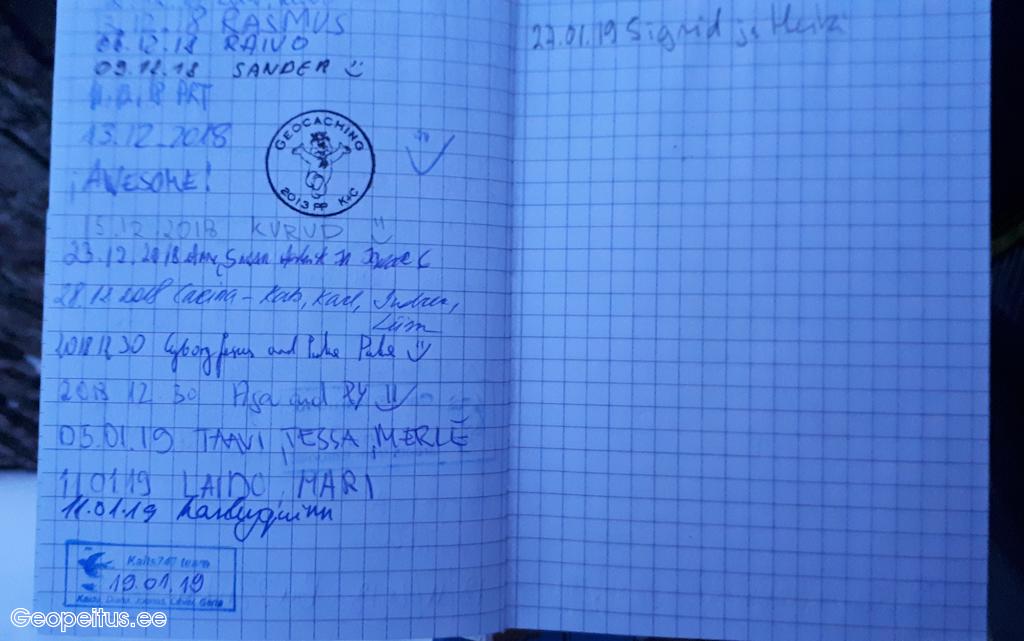 .12.18 RASMUS
06.12.18 RAIVO
09.12.18 SANDER
11.12.18 ART
13.12.2018
GEOCACHING
2013 PP K+C
¡AWESOME!
15.12.2018 KURUD
23.12.2018
28.12.2018 Carina - Kats, Karl,
Liim
2018 12 30 Cyborg Jesus and
2018 12 30 Aga and
05.01.19 TAAVI, TESSA, MERLE
11.01.19 LAIDO, MARI
11.01.19 harleyquinn
Kalls747 team
19.01.19
27.01.19 Sigrid ja Heiki
Geopeitus.ee